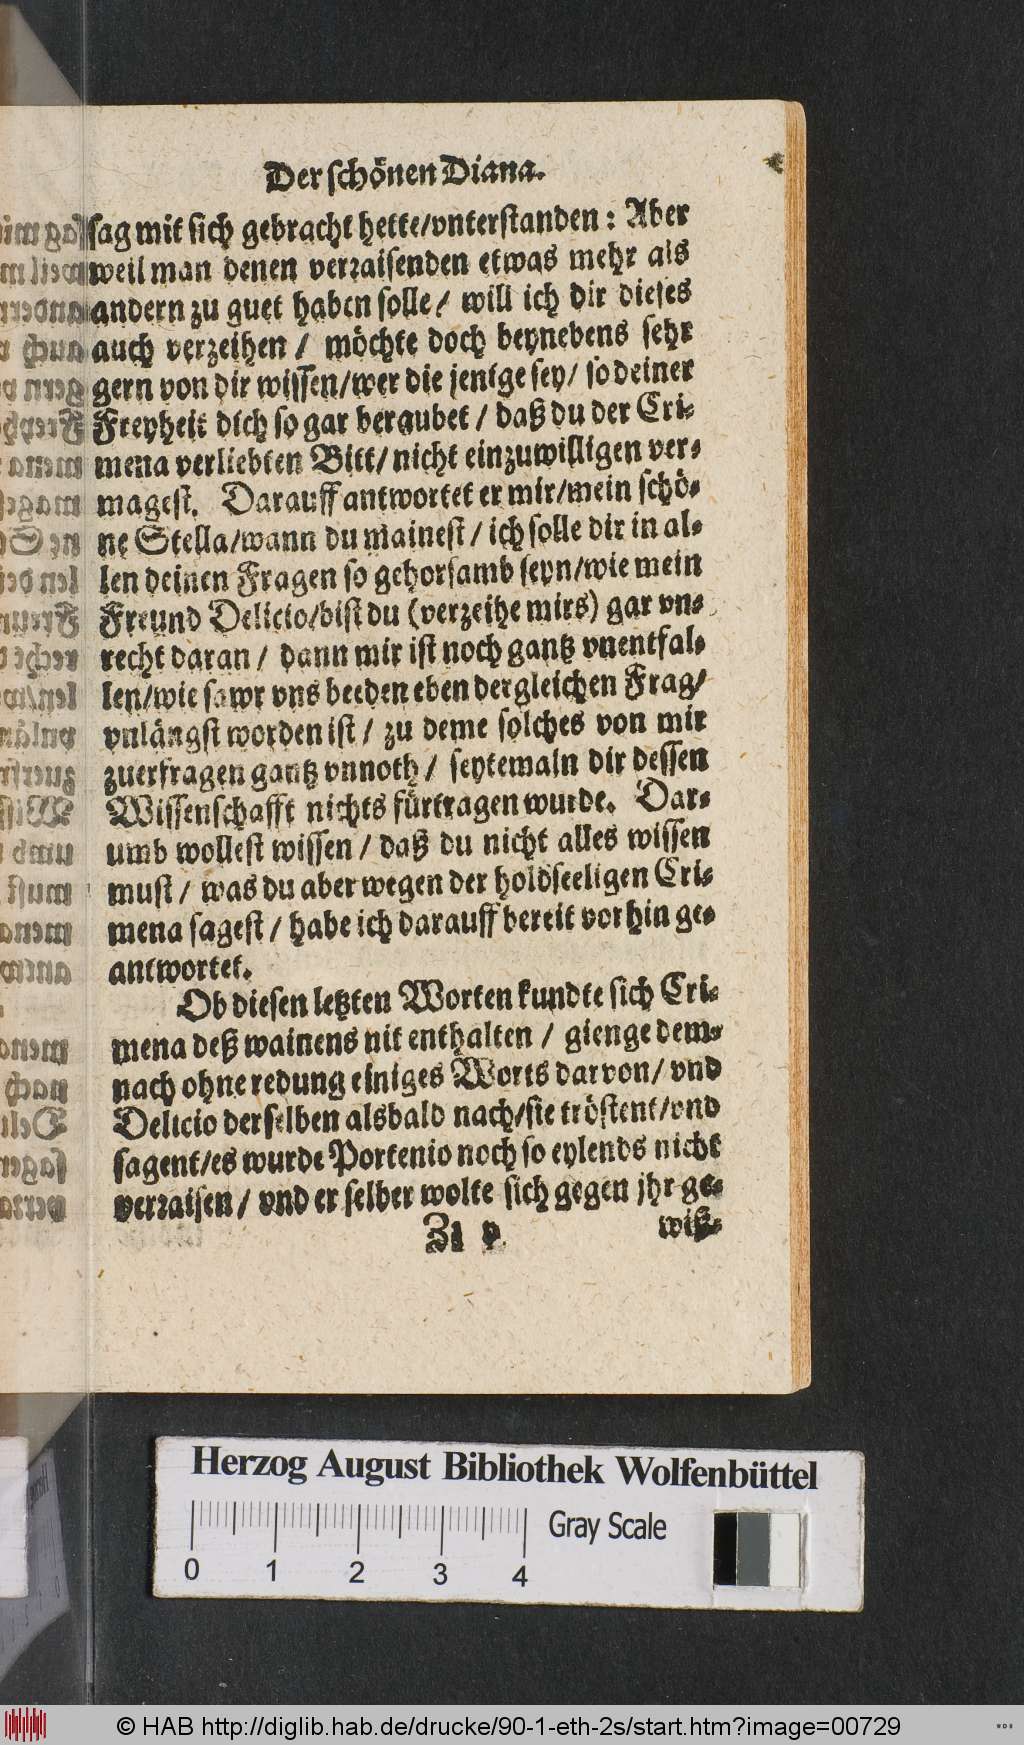 Der schönen Diana.
sag mit sich gebracht hette/vnterstanden: Aber
weil man denen verraisenden etwas mehr als
andern zu guet haben solle/ will ich dir dieses
auch verzeihen/ möchte doch beynebens sehr
gern von dir wissen/wer die jenige sey/ so deiner
Freyheit dich so gar beraubet/ daß du der Cri-
mena verliebten Bitt/ nicht einzuwilligen ver-
magest. Darauff antwortet er mir/mein schö-
ne Stella/wann du mainest/ ich solle dir in al-
len deinen Fragen so gehorsamb seyn/wie mein
Freund Delicio/bist du (verzeihe mirs) gar vn-
recht daran/ dann mir ist noch gantz vnentfal-
len/wie sawr vns beeden eben dergleichen Frag/
vnlängst worden ist/ zu deme solches von mir
zuerfragen gantz vnnoth/ seytemaln dir dessen
Wissenschafft nichts fürtragen wurde. Dar-
umb wollest wissen/ daß du nicht alles wissen
must/ was du aber wegen der holdseeligen Cri-
mena sagest/ habe ich darauff bereit vorhin ge-
antwortet.
Ob diesen letzten Worten kundte sich Cri-
mena deß wainens nit enthalten/ gienge dem-
nach ohne redung einiges Worts darvon/ vnd
Delicio derselben alsbald nach/sie tröstent/vnd
sagent/es wurde Portenio noch so eylends nicht
verraisen/ vnd er selber wolte sich gegen jhr ge-
Zz v wiß-
Herzog August Bibliothek Wolfenbüttel
0 1 2 3 4 Gray Scale
© HAB http://diglib.hab.de/drucke/90-1-eth-2s/start.htm?image=00729